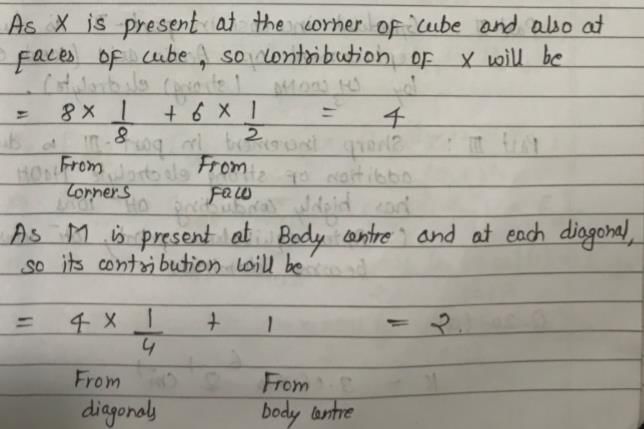 As X is present at the corner of cube and also at
faces of cube, so contribution of X will be
= 8 × 1/8 + 6 × 1/2 = 4
From From
Corners Face
As M is present at Body centre and at each diagonal,
so its contribution will be
= 4 × 1/4 + 1 = 2.
From From
diagonals body centre